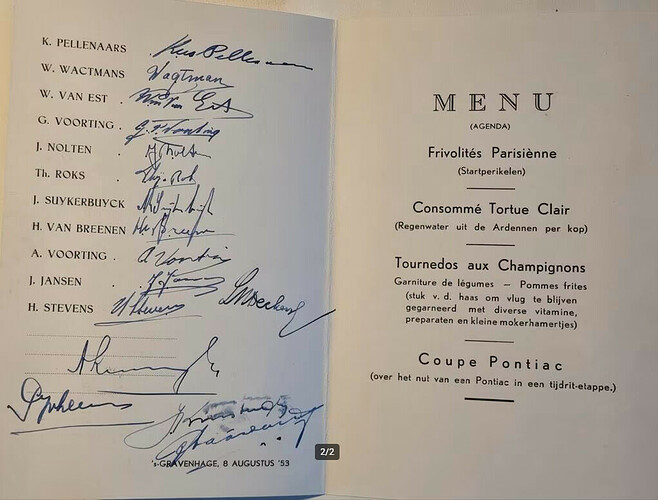 K. PELLENAARS Kees Pellenaars
W. WACTMANS Wagtmans
W. VAN EST . Wim Van Est
G. VOORTING . G. Voorting
J. NOLTEN . J. Nolten
Th. ROKS . Thijs Roks
J. SUYKERBUYCK
H. VAN BREENEN H. v Breenen
A. VOORTING . A. Voorting
J. JANSEN . J. Jansen
H. STEVENS H Stevens
's-GRAVENHAGE, 8 AUGUSTUS '53
MENU
(AGENDA)
Frivolités Parisiènne
(Startperikelen)
Consommé Tortue Clair
(Regenwater uit de Ardennen per kop)
Tournedos aux Champignons
Garniture de légumes — Pommes frites
(stuk v. d. haas om vlug te blijven
gegarneerd met diverse vitamine,
preparaten en kleine mokerhamertjes)
Coupe Pontiac
(over het nut van een Pontiac in een tijdrit-etappe.)
2/2